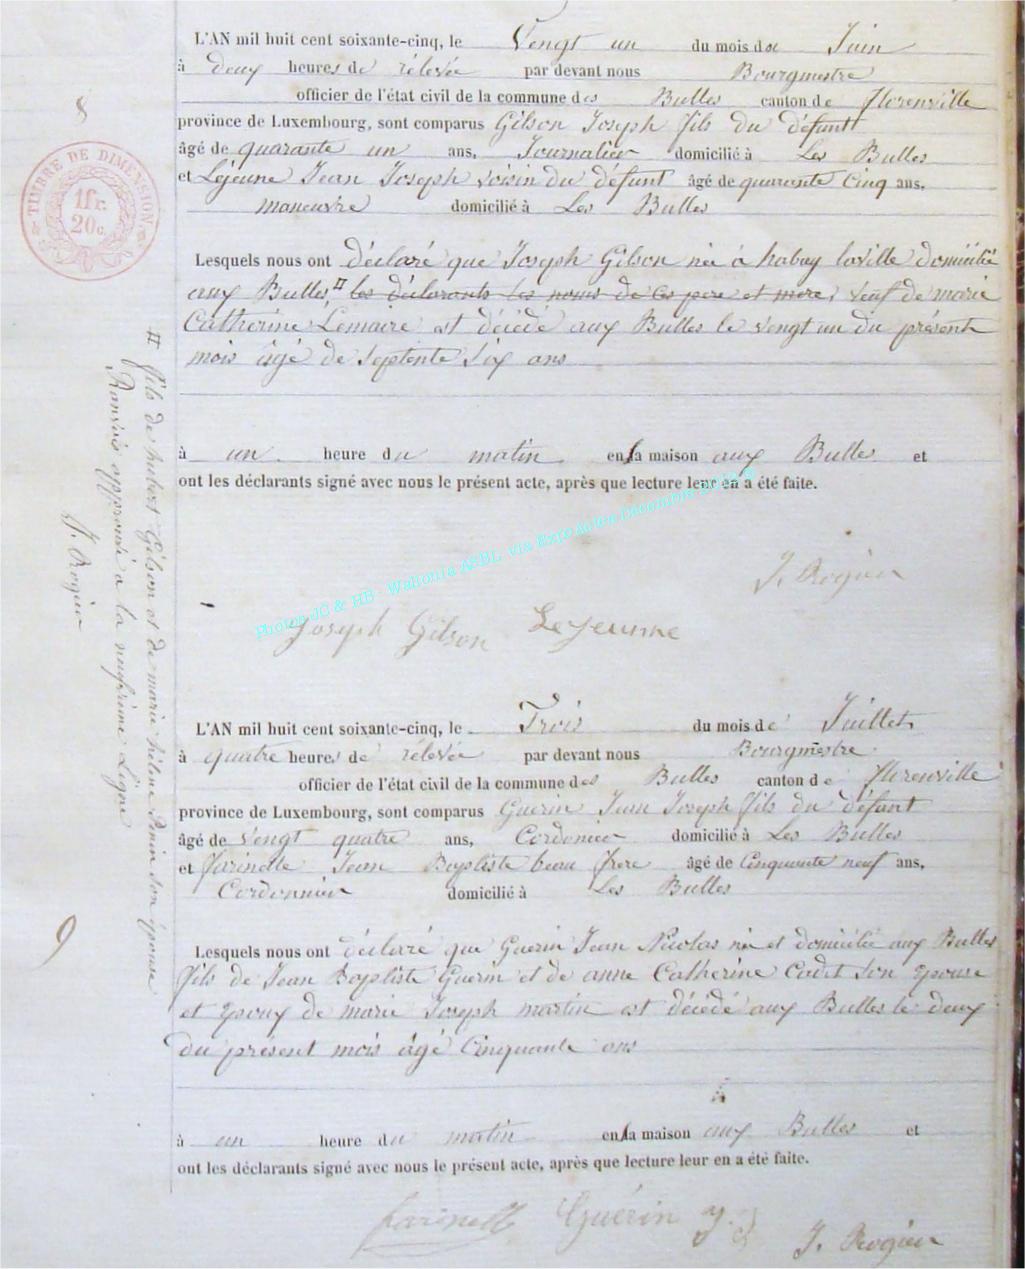 8
L'AN mil huit cent soixante-cinq, le Vengt un du mois de Juin
à deux heures de rélevée par devant nous Bourgmestre
officier de l'état civil de la commune des Bulles canton de florenville
province de Luxembourg, sont comparus Gilson Joseph fils du défunt
âgé de quarante un ans, Journalier domicilié à Les Bulles
et Lejeune Jean Joseph voisin du défunt âgé de quarante Cinq ans,
maneuvre domicilié à Les Bulles
TIMBRE DE DIMENSION
1fr.
20c.
Lesquels nous ont déclaré que Joseph Gilson née à habay laville domicilié
aux Bulles # les déclarants les noms de ces pere et mere, veuf de marie
Catherine Lemaire est décédé aux Bulles le vengt un du présent
mois âgé de septente six ans
à un heure du matin en la maison aux Bulles et
ont les déclarants signé avec nous le présent acte, après que lecture leur en a été faite.
Photos JC & HB - Wallonia ASBL via ExpoActes Décembre
J. Rogier
Joseph Gilson Lejeunne
# fils de hubert Gilson et de marie hélene son épouse
Ranvois approuvé a la neufvieme Ligne
J. Rogier
9
L'AN mil huit cent soixante-cinq, le Trois du mois de Juillet
à quatre heures de relevée par devant nous Bourgmestre
officier de l'état civil de la commune des Bulles canton de florenville
province de Luxembourg, sont comparus Guerin Jean Joseph fils du défunt
âgé de vengt quatre ans, Cordonier domicilié à Les Bulles
et farinelle Jean Baptiste beau frere âgé de Cinquante neuf ans,
Cordonnier domicilié à Les Bulles
Lesquels nous ont déclaré que Guerin Jean Nicolas née et domicilié aux Bulles
fils de Jean Baptiste Guerin et de anne Catherine Cadet son épouse
et époux de marie Joseph martin est décédé aux Bulles le deux
du présent mois âgé Cinquante ans
à un heure du matin en la maison aux Bulles et
ont les déclarants signé avec nous le présent acte, après que lecture leur en a été faite.
farinelle Guérin J. J. J. Rogier